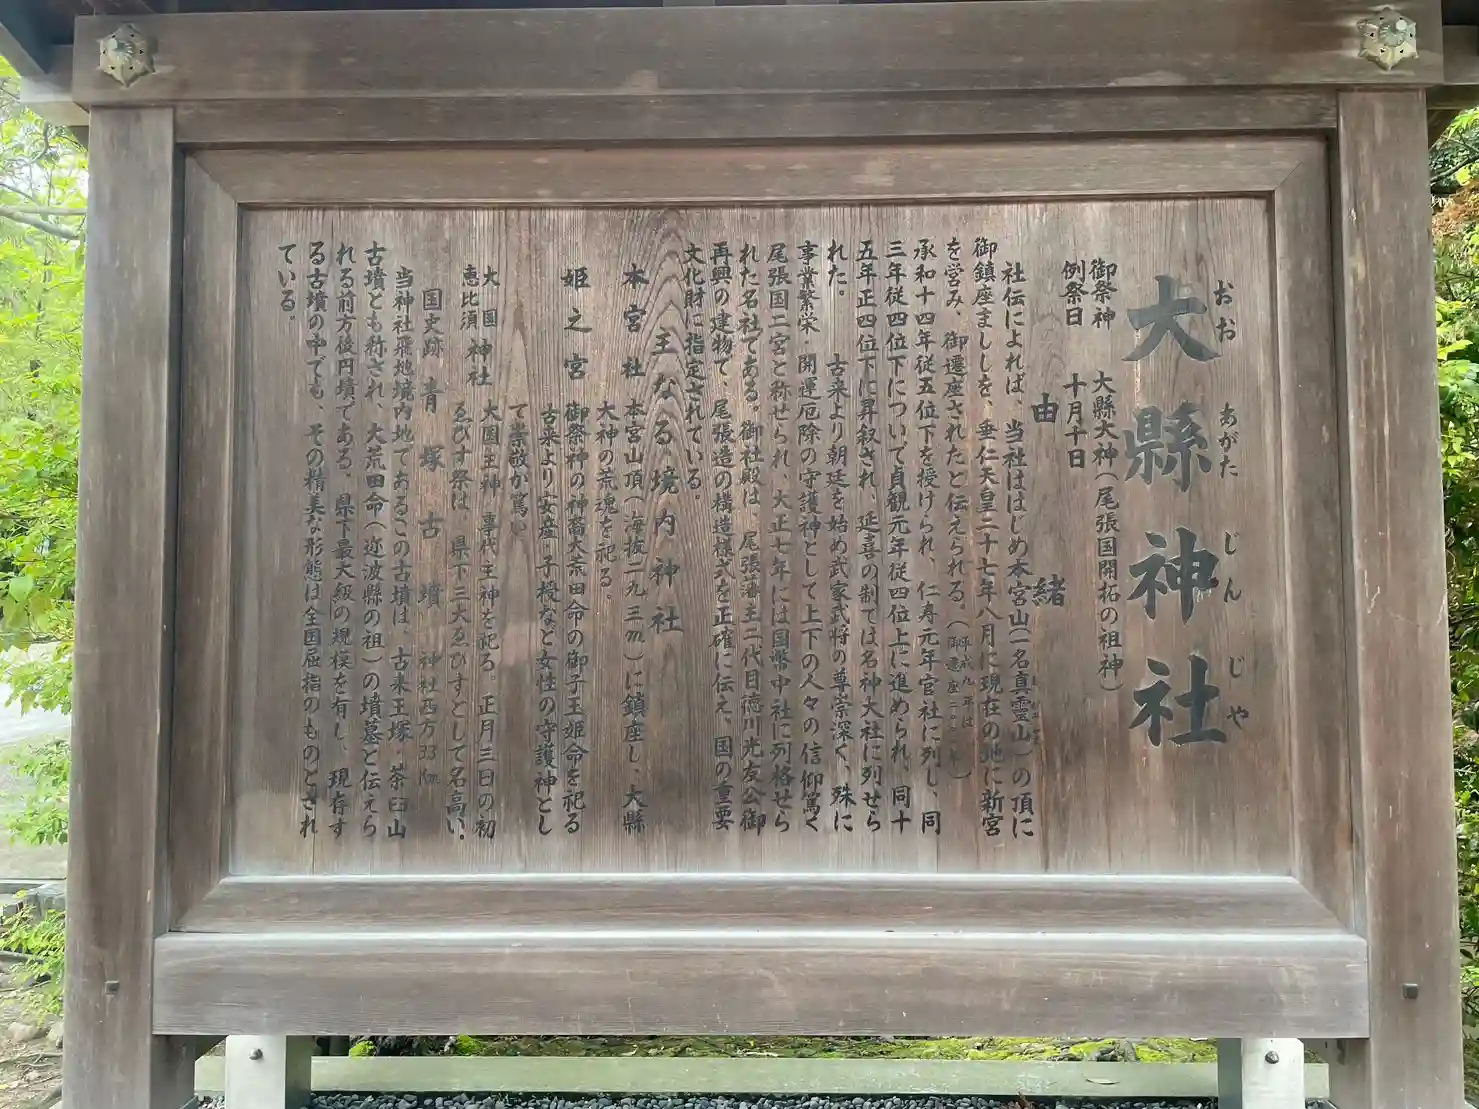 大縣神社
おお あがた じんじゃ
御祭神 大縣大神(尾張国開拓の祖神)
例祭日 十月十日
由緒
社伝によれば、当社ははじめ本宮山(一名真霊山)の頂に
御鎮座ましししを、垂仁天皇二十七年八月に現在の地に新宮
を営み、御遷座されたと伝えられる。(平成九年は御遷座二〇〇〇年)
承和十四年従五位下を授けられ、仁寿元年官社に列し、同
三年従四位下について貞観元年従四位上に進められ、同十
五年正四位下に昇叙され、延喜の制では名神大社に列せら
れた。 古来より朝廷を始め武家武将の尊崇深く、殊に
事業繁栄・開運厄除の守護神として上下の人々の信仰篤く
尾張国二宮と称せられ、大正七年には国幣中社に列格せら
れた名社である。御社殿は、尾張藩主二代目徳川光友公御
再興の建物で、尾張造の構造様式を正確に伝え、国の重要
文化財に指定されている。
〈主なる境内神社〉
本宮社 本宮山頂(海抜二九三m)に鎮座し、大縣
大神の荒魂を祀る。
姫之宮 御祭神の神裔大荒田命の御子玉姫命を祀る
古来より安産・子授など女性の守護神とし
て崇敬が篤い
大国恵比須神社 大国主神、事代主神を祀る。正月三日の初
ゑびす祭は、県下三大ゑびすとして名高い。
国史跡 青塚古墳 神社西方3.3Km
当神社飛地境内地であるこの古墳は、古来王塚・茶臼山
古墳とも称され、大荒田命(迩波縣の祖)の墳墓と伝えら
れる前方後円墳である。県下最大級の規模を有し、現存す
る古墳の中でも、その精美な形態は全国屈指のものとされ
ている。